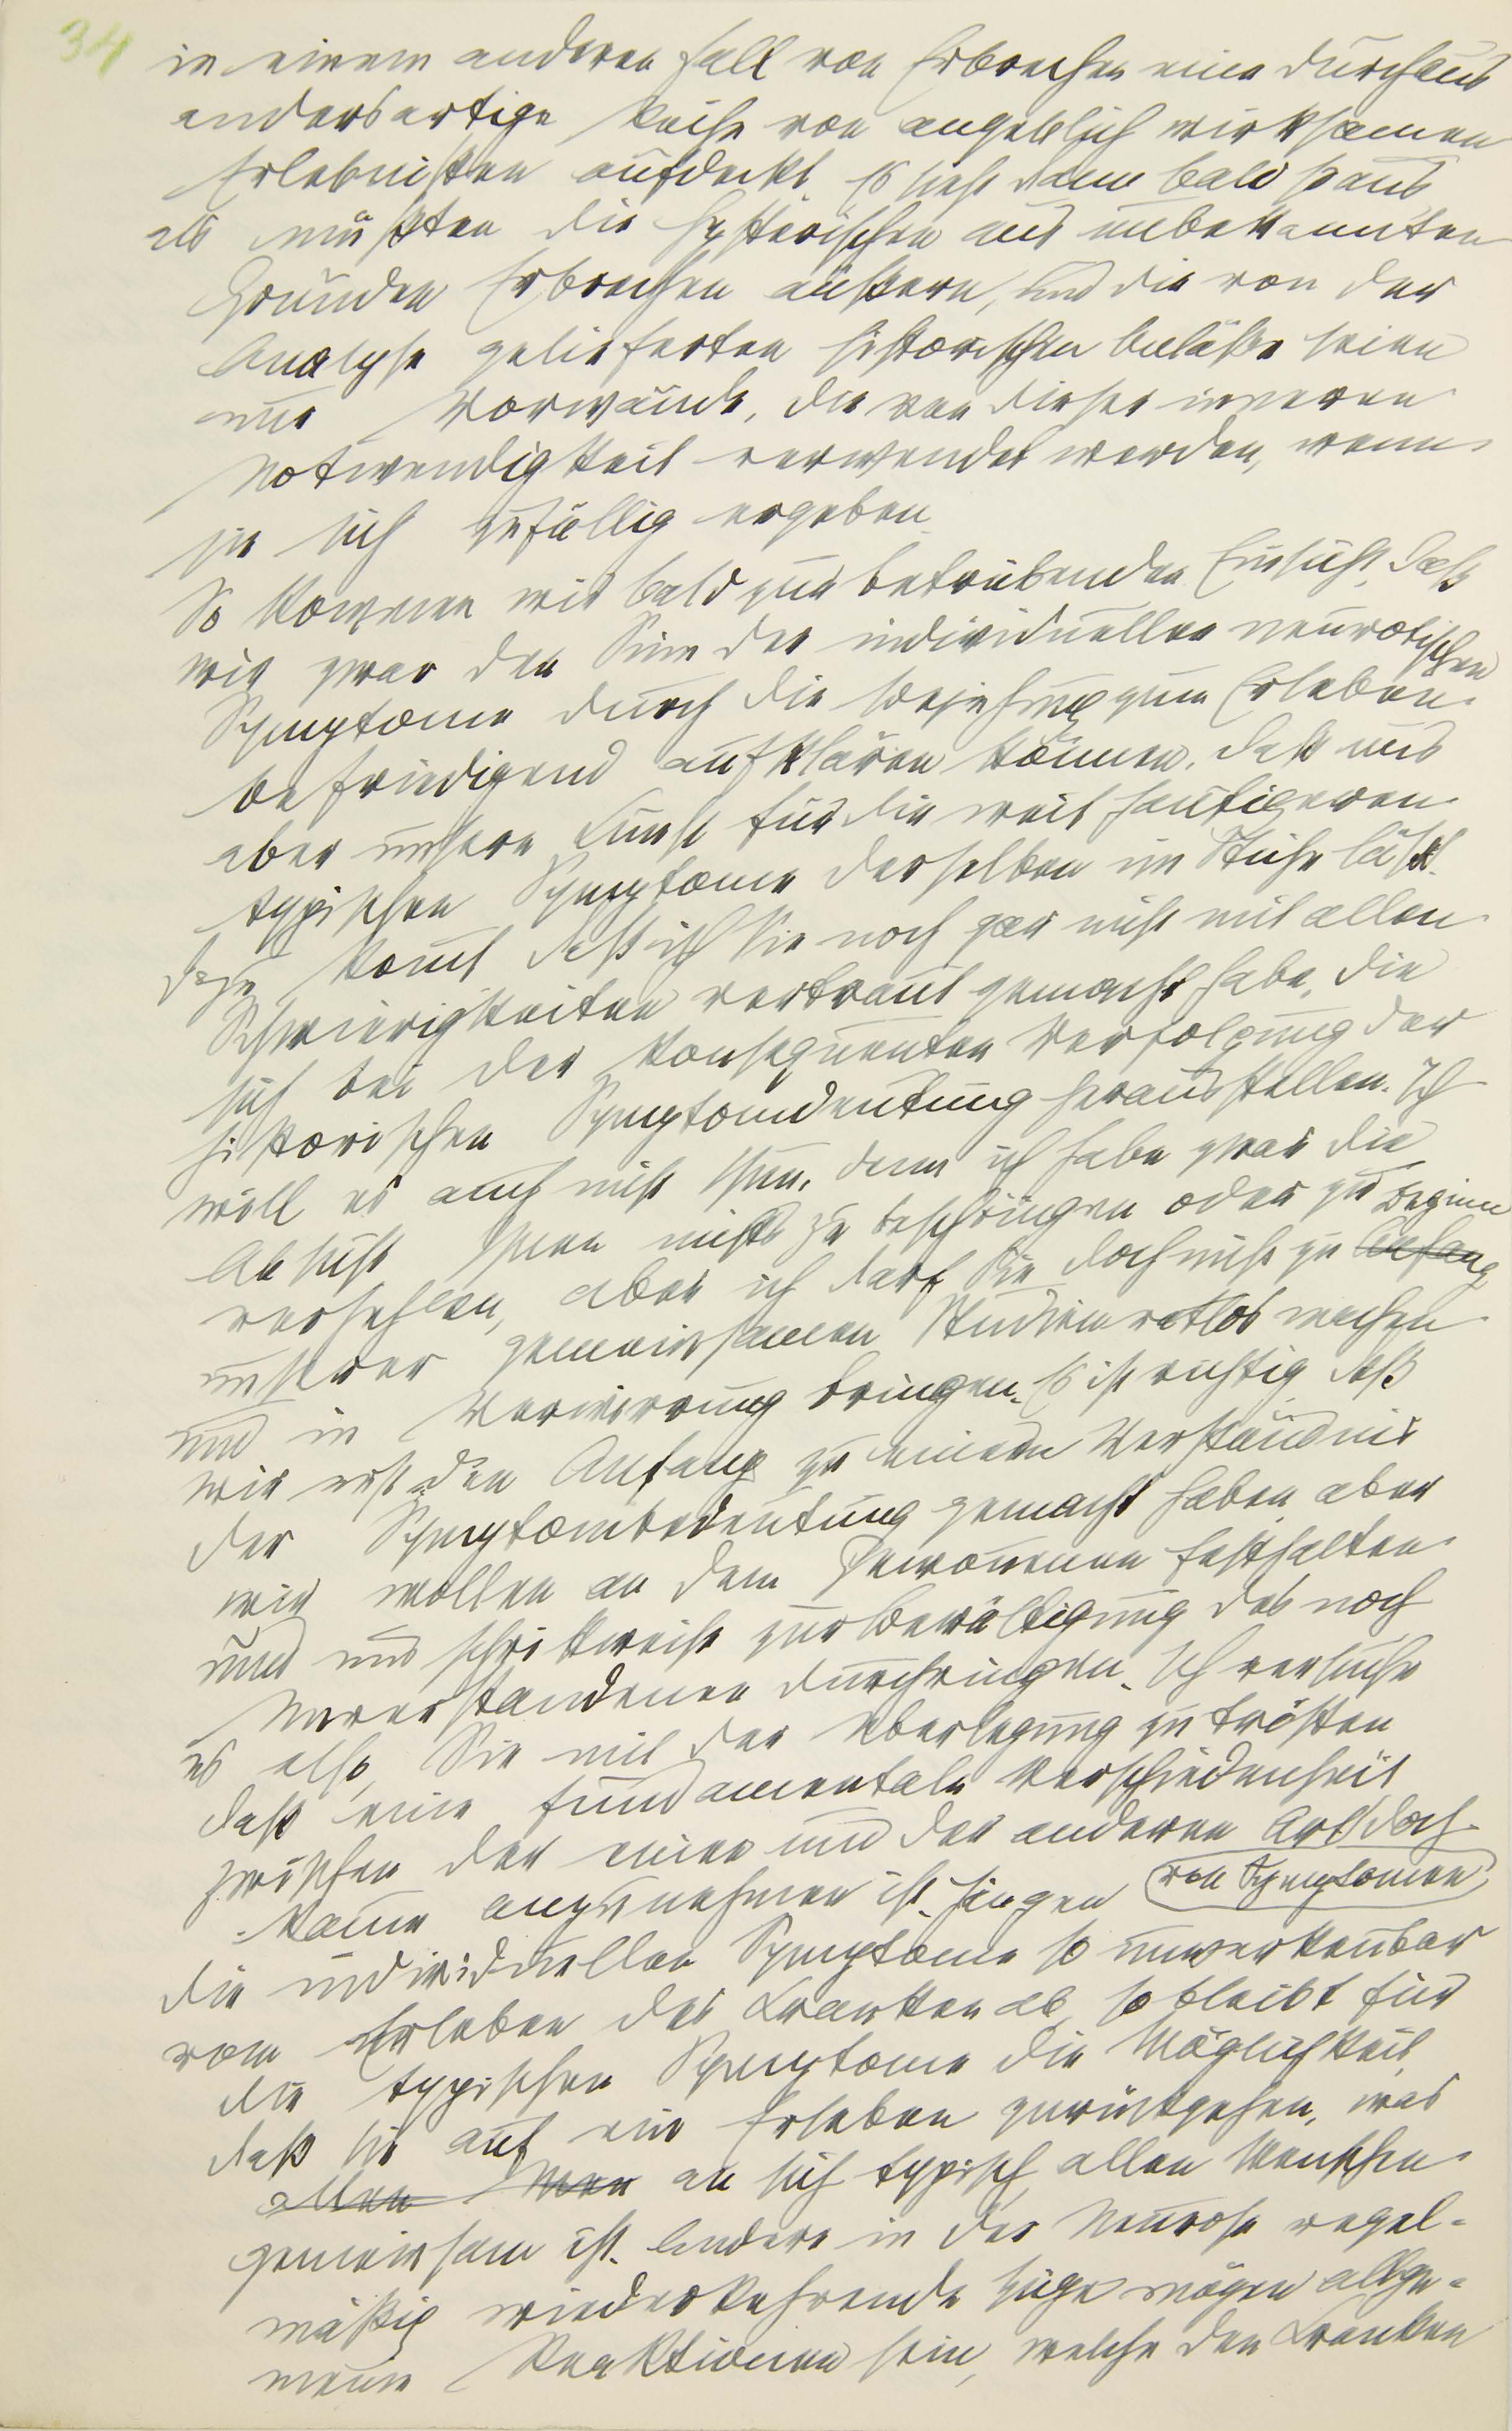 34
in einem anderen Fall von Erbrechen eine durchaus
andersartige Reihe von angeblich wirksamen
Erlebnissen aufdeckt. Es sieht dann bald so aus
als müßten die Hysterischen aus unbekannten
Gründen Erbrechen äußern, und die von der
Analyse gelieferten historischen Anläße seien
nur Vorwände, die von dieser inneren
Notwendigkeit verwendet werden, wenn
sie sich zufällig ergeben.
So kommen wir bald zur betrübenden Einsicht, daß
wir zwar den Sinn der individuellen neurotischen
Symptome durch die Beziehung zum Erleben
befriedigend aufklären können, daß uns
aber unsere Kunst für die weit häufigeren
typischen Symptome derselben im Stiche läßt.
Dazu kommt daß ich Sie noch gar nicht mit allen
Schwierigkeiten vertraut gemacht habe, die
sich bei der konsequenten Verfolgung der
historischen Symptomdeutung herausstellen. Ich
will es auch nicht thun, denn ich habe zwar die
Absicht Ihnen nichts zu beschönigen oder zu
verhehlen, aber ich darf Sie doch nicht zu Anfang Beginn
unserer gemeinsamen Studien ratlos machen
und in Verwirrung bringen. Es ist richtig, daß
wir erst den Anfang zu einem Verständnis
der Symptombedeutung gemacht haben, aber
wir wollen an dem Gewonnenen festhalten
und uns schrittweise zur Bewältigung des noch
Unverstandenen durchringen. Ich versuche
es also, Sie mit der Überlegung zu trösten
daß eine fundamentale Verschiedenheit
zwischen der einen und der anderen Art doch
kaum anzunehmen ist. Hängen von Symptomen
die individuellen Symptome so unverkennbar
vom Erleben des Kranken ab, so bleibt für
die typischen Symptome die Möglichkeit,
daß sie auf ein Erleben zurückgehen, was
allen Men an sich typisch, allen Menschen
gemeinsam ist. Andere in der Neurose regel-
mäßig wiederkehrende Züge mögen allge-
meine Reaktionen sein, welche den Kranken